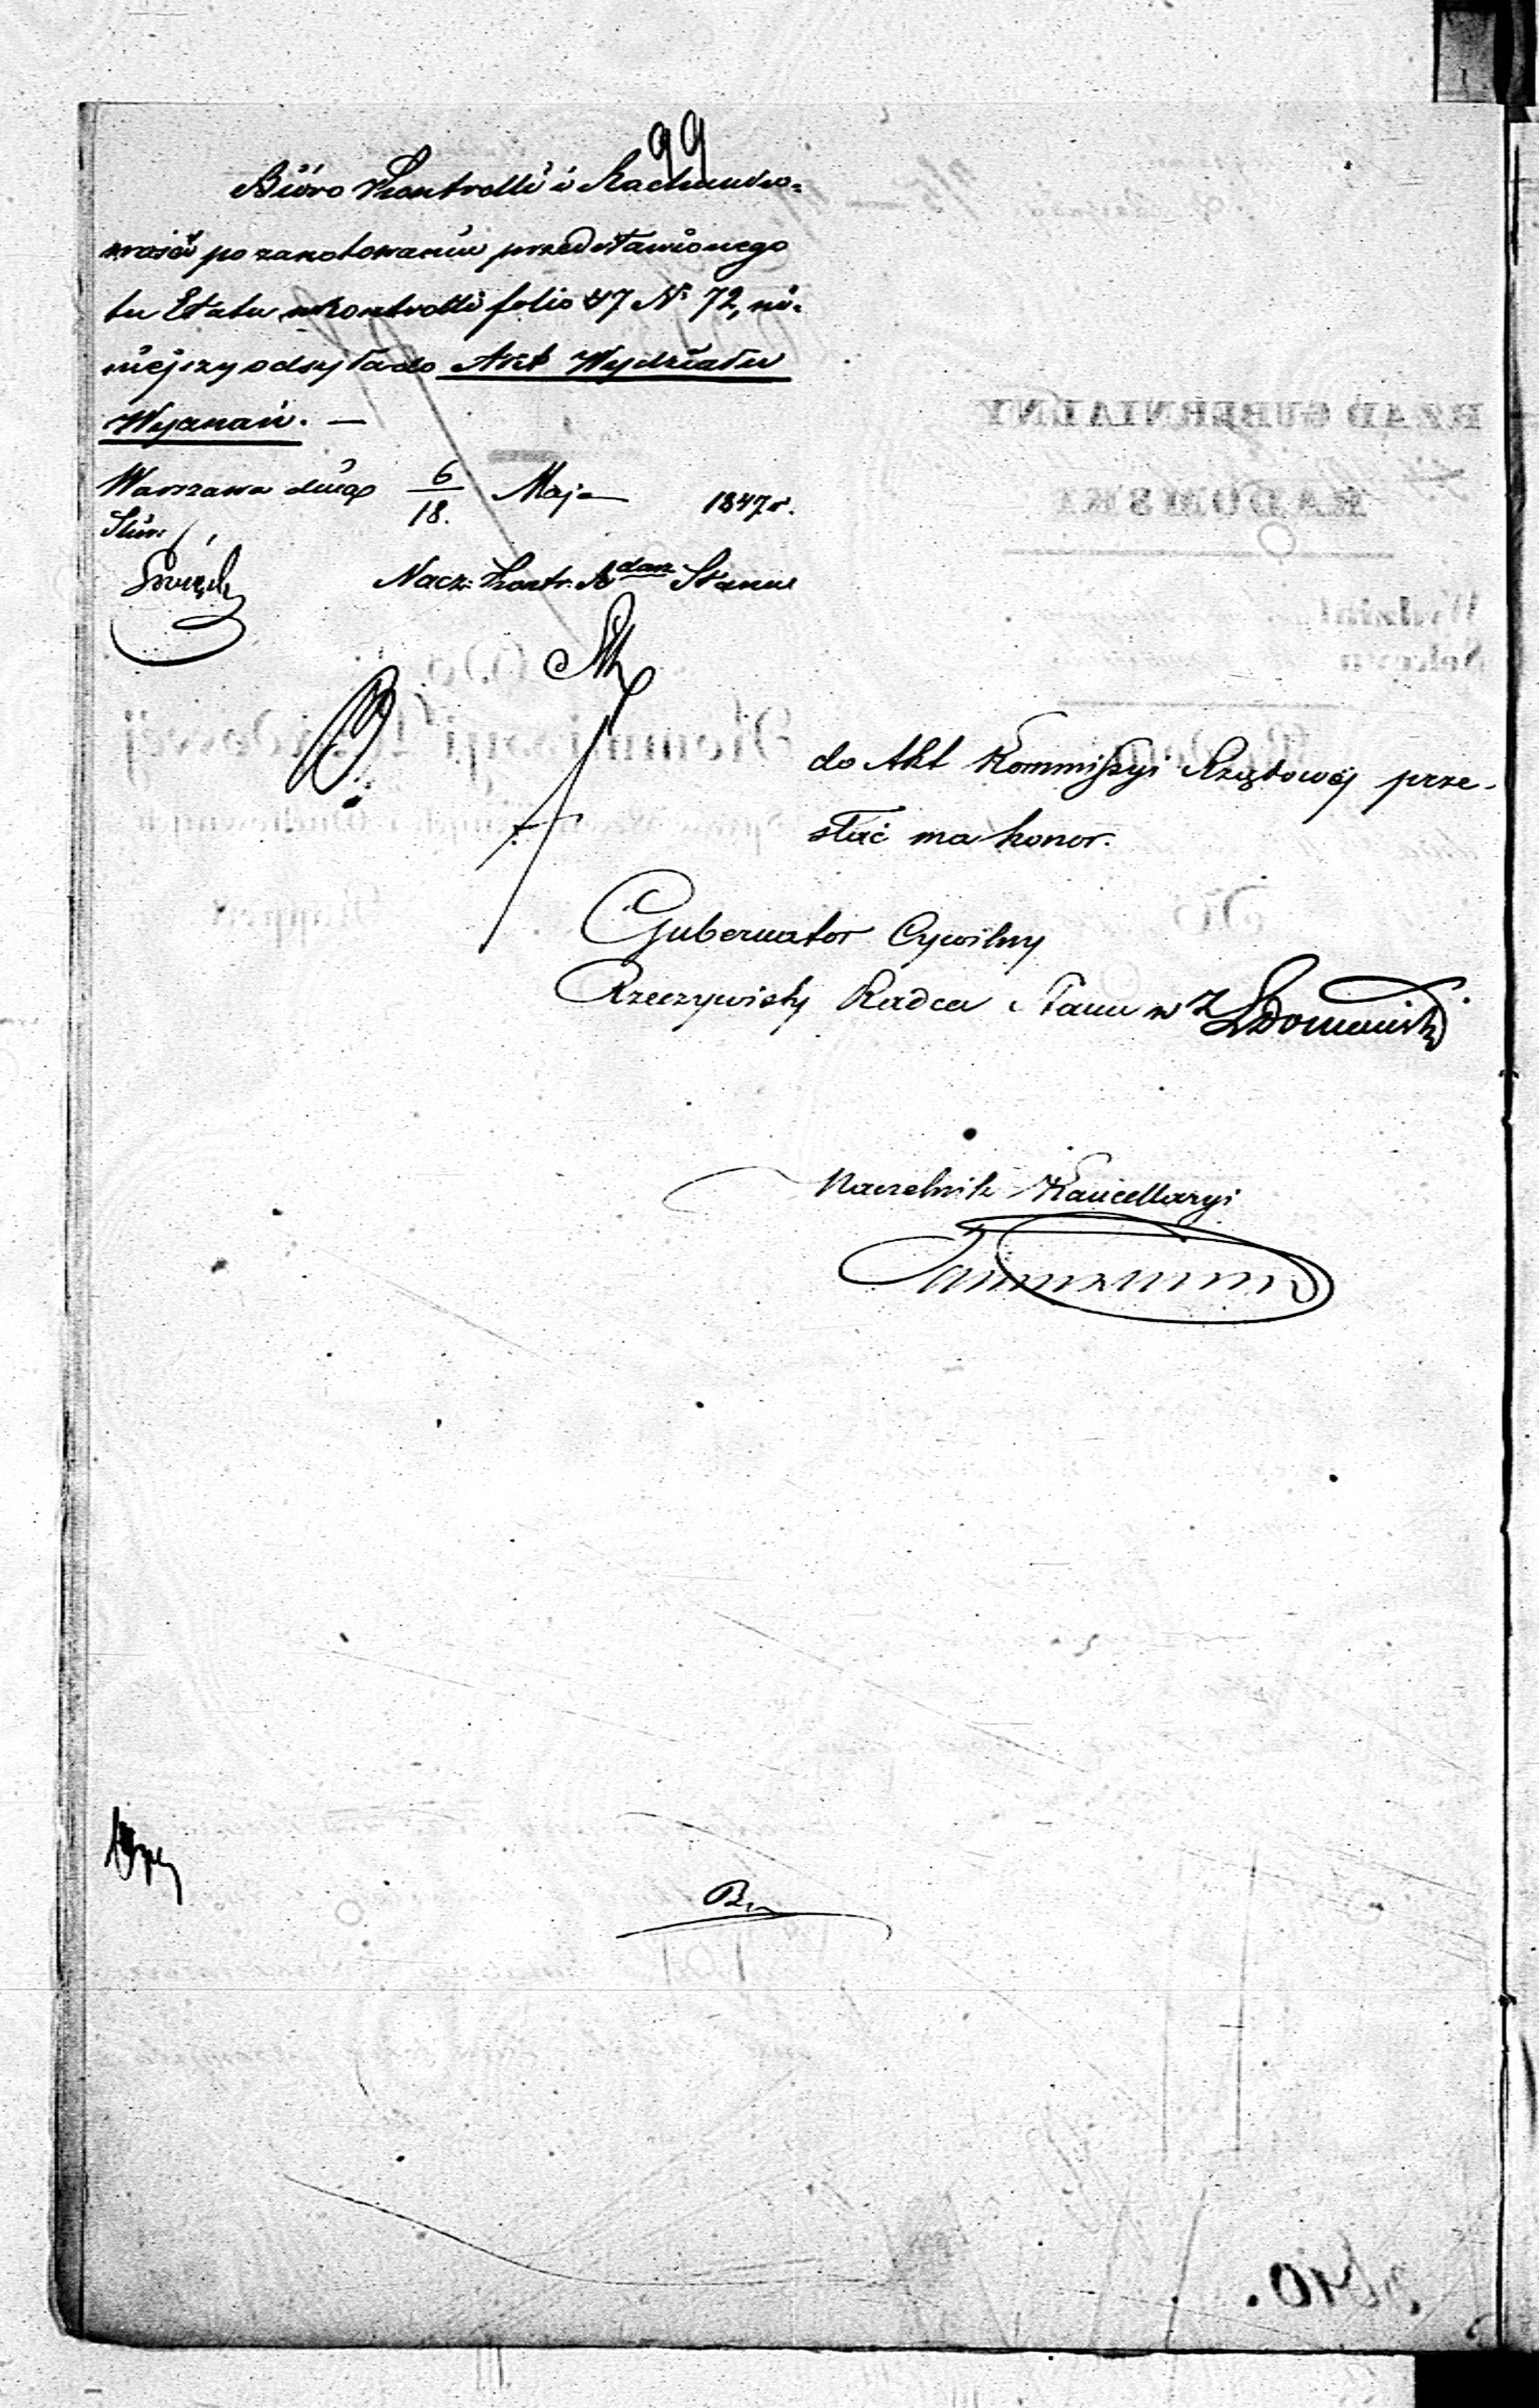 99
Biüro Kontrolli i Rachunko-
wości po zanotowaniu przedstawionego
tu Etatu w Kontrolli folio 47 Nr 72, ni-
niejszy odsyła do Akt Wydziału
Wyznań. —
Warszawa dnia 6/18. Maja 1847 r.
Nacz: Kontr: Radca Stanu
do Akt Kommissyi Rządowéj prze-
słać ma honor.
Gubernator Cywilny
Rzeczywisty Radca Stanu w Z
Naczelnik Kancellaryi